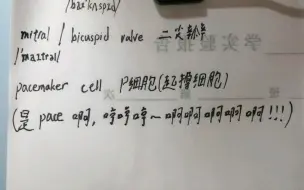 /baɪˈkʌspɪd/
mitral / bicuspid valve 二尖瓣
/ˈmaɪtrəl/
pacemaker cell P细胞(起搏细胞)
(是 pace 啊, 哼哼哼~啊啊啊啊啊!!!)
学实验报告